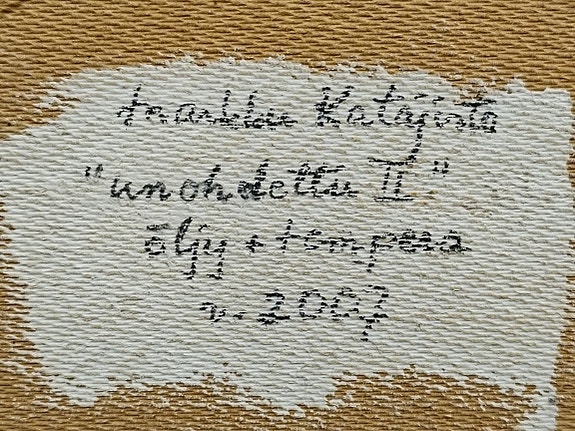 Markku Katajisto
"unohdettu II"
öljy + tempera
v. 2007